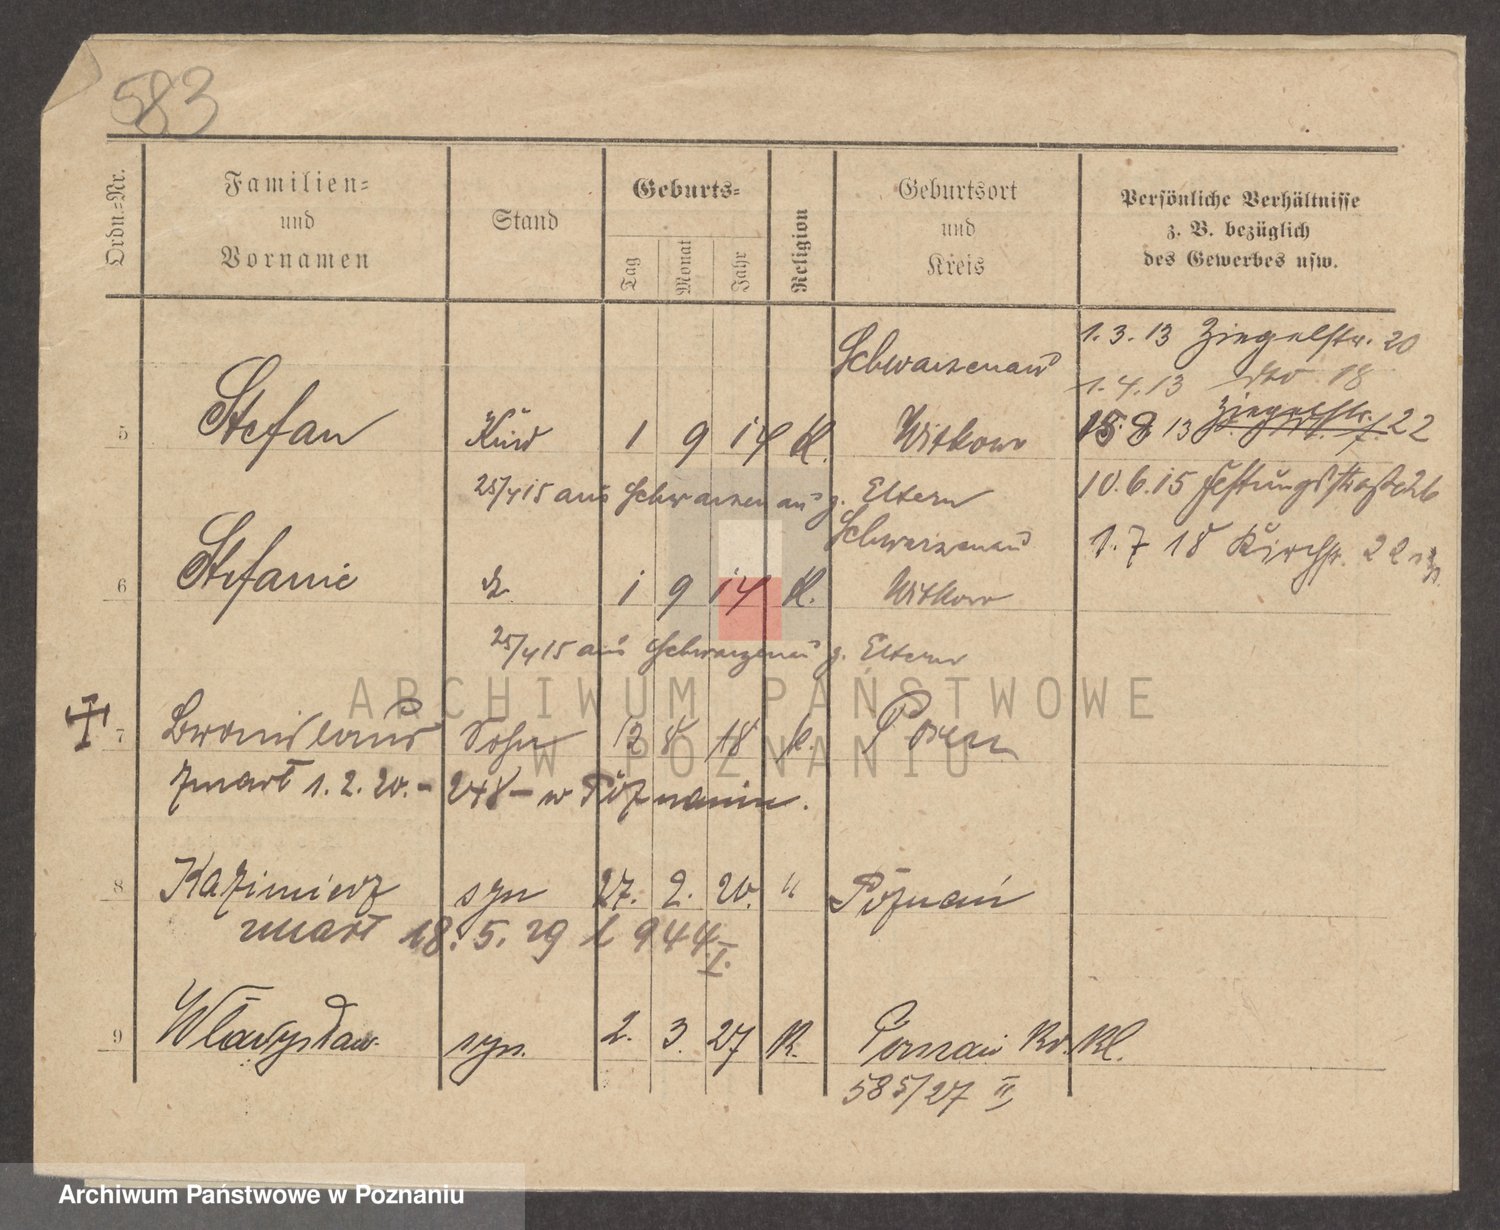 583
Ordn.=Nr.
Familien=
und
Vornamen
Stand
Geburts=
Tag
Monat
Jahr
Religion
Geburtsort
und
Kreis
Persönliche Verhältnisse
z. B. bezüglich
des Gewerbes usw.
1. 3. 13 Ziegelstr. 20
1. 4. 13 dto 18
5 Stefan Kind 1 9 14 K. Schwarzenau Witkowo
15 8 13 Ziegelstr. 22
25/4 15 aus Schwarzenau z. Eltern
10. 6. 15 Festungsstraße 26
6 Stefanie 1 9 14 K. Schwarzenau Witkowo
1. 7 18 Kirchstr. 22
25/4 15 aus Schwarzenau z. Eltern
7 Bronislaus Sohn 8 18 k. Posen
zmarł 1. 2. 20. - 248 - w Poznaniu.
8 Kazimierz syn 27. 2. 20. " Poznań
zmarł 18. 5. 29 944 I.
9 Władysław syn. 2. 3. 27 K. Poznań
585/27 II
ARCHIWUM PAŃSTWOWE
W POZNANIU
Archiwum Państwowe w Poznaniu